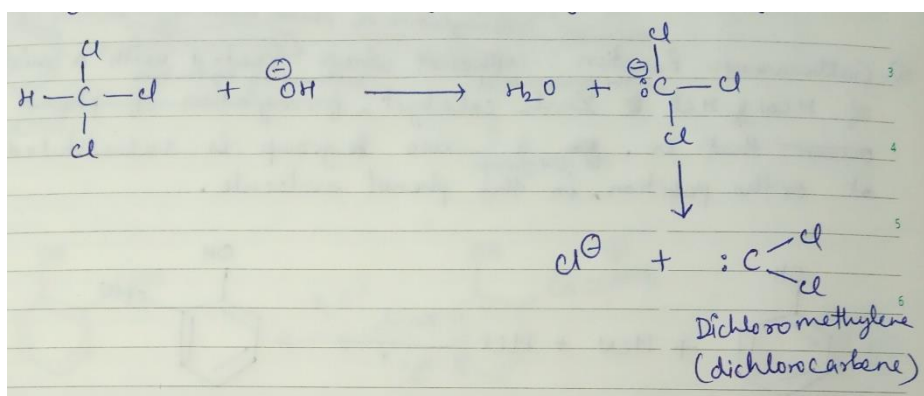 Cl
H — C — Cl + ⊖OH ⟶ H₂O + ⊖:C — Cl
Cl
Cl
Cl
Cl⊖ + :C
Cl
Cl
Dichloromethylene
(dichlorocarbene)
3
4
5
6